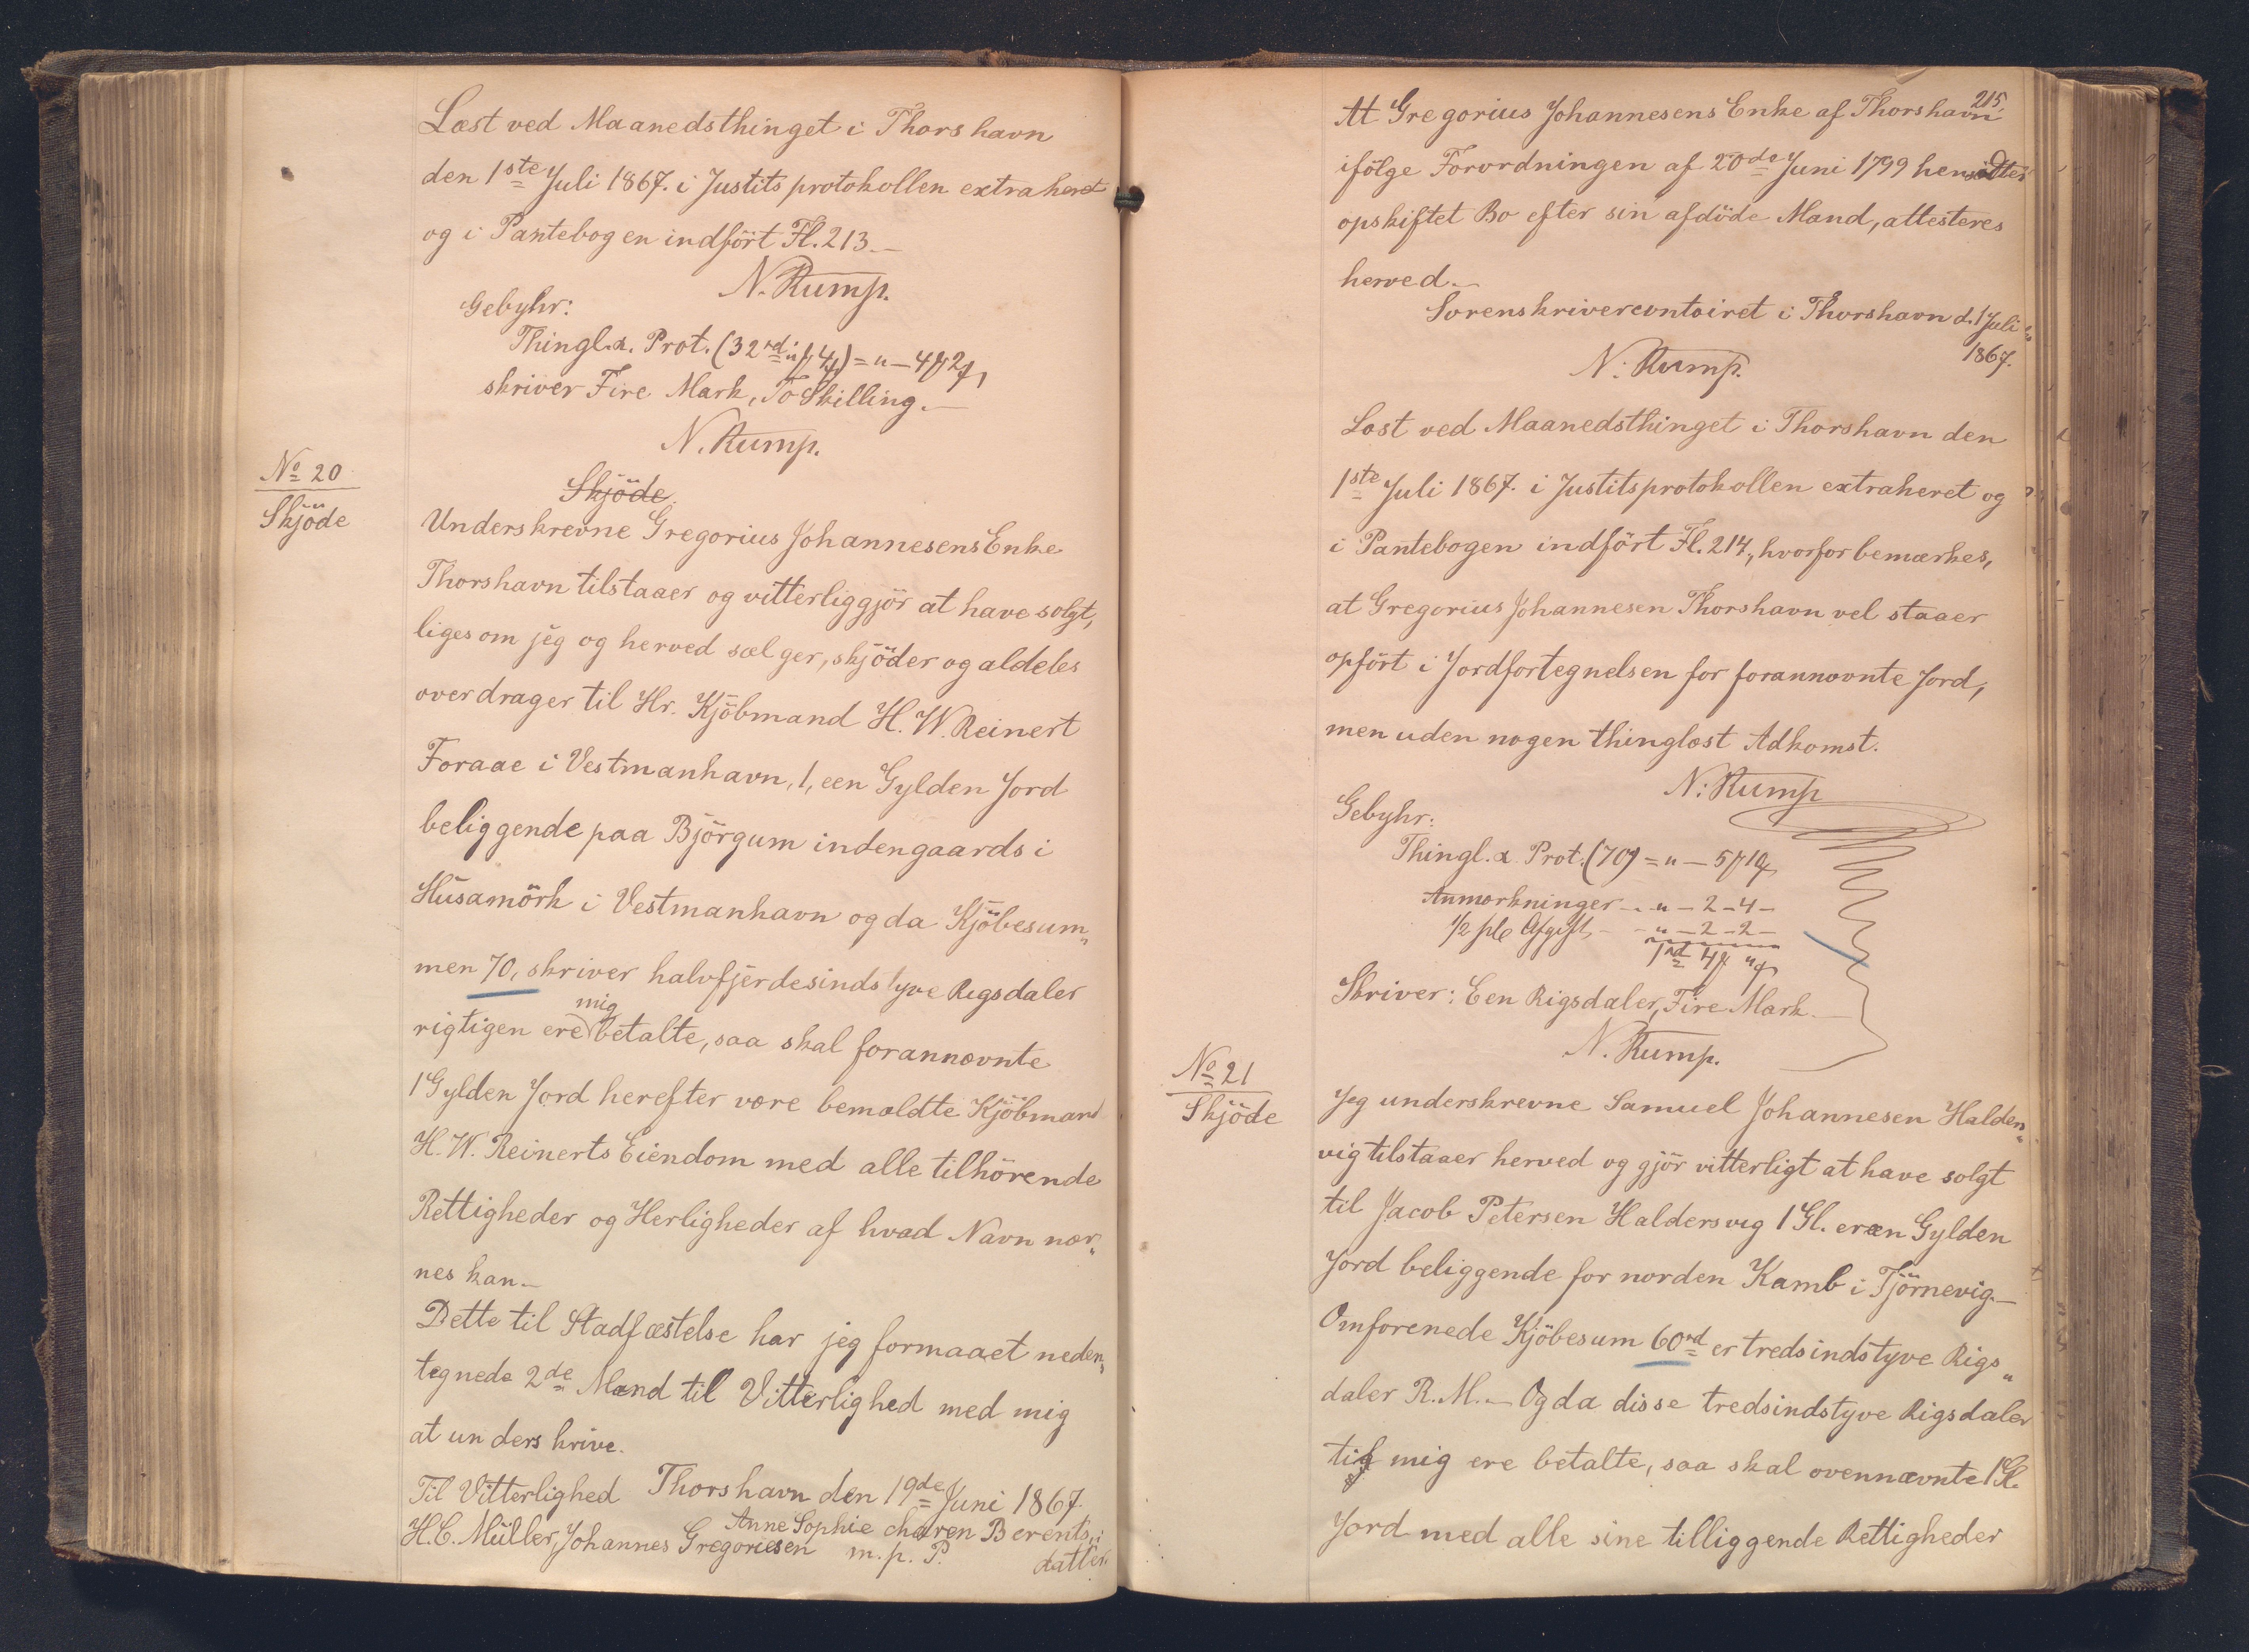 Læst ved Maanedsthinget i Thorshavn
den 1ste Juli 1867. i Justitsprotokollen extraheret
og i Pantebogen indfört Fl. 213.—
N. Rump.
Gebyhr:
Thingl. & Prot. (32rd „ 4) = „ — 4 2
skriver Fire Mark, To Skilling.—
N. Rump.
No 20
Skjöde
Skjöde.
Underskrevne Gregorius Johannesens Enke
Thorshavn tilstaaer og vitterliggjör at have solgt,
ligesom jeg og herved sælger, skjöder og aldeles
overdrager til Hr. Kjöbmand H. W. Reinert
Foraae i Vestmanhavn, 1, een Gylden Jord
beliggende paa Björgum indengaards i
Húsamörk i Vestmanhavn og da Kjöbesum„
men 70, skriver halvfjerdesindstyve Rigsdaler
mig
rigtigen ere betalte, saa skal forannævnte
1 Gylden Jord herefter være bemældte Kjöbmand
H. W. Reinerts Eiendom med alle tilhörende
Rettigheder og Herligheder af hvad Navn næv„
nes kan.—
Dette til Stadfæstelse har jeg formaaet neden„
tegnede 2de Mænd til Vitterlighed med mig
at underskrive.
Thorshavn den 19de Juni 1867.
Til Vitterlighed
Anne Sophie charen Berents„
H. C. Müller, Johannes Gregoriesen m. p. P. datter.
215.
At Gregorius Johannesens Enke af Thorshavn
ifölge Forordningen af 20de Juni 1799 hensidder
opskiftet Bo efter sin afdöde Mand, attesteres
herved.—
Sorenskrivercontoiret i Thorshavn d. 1 Juli
1867.
N. Rump.
Læst ved Maanedsthinget i Thorshavn den
1ste Juli 1867. i Justitsprotokollen extraheret og
i Pantebogen indfört Fl. 214., hvorfor bemærkes,
at Gregorius Johannesen Thorshavn vel staaer
opfört i Jordfortegnelsen for forannævnte Jord,
men uden nogen thinglæst Adkomst.
N. Rump
Gebyhr:
Thingl. & Prot. (70) = „ — 5 10
Anmærkninger - „ — 2 — 4 —
1/2 pC Afgift, - - „ — 2 — 2 —
1rd 4 „
Skriver: Een Rigsdaler, Fire Mark.—
N. Rump.
No 21
Skjöde
Jeg underskrevne Samuel Johannesen Halder„
vig tilstaaer herved og gjör vitterligt at have solgt
til Jacob Petersen Haldersvig 1 Gl. er een Gylden
Jord beliggende for norden Kamb i Tjörnevig.—
Omforenede Kjöbesum 60rd er tredsindstyve Rigs„
daler R. M.— Og da disse tredsindstyve Rigsdaler
til mig ere betalte, saa skal ovennævnte 1 Gl.
Jord med alle sine tilliggende Rettigheder